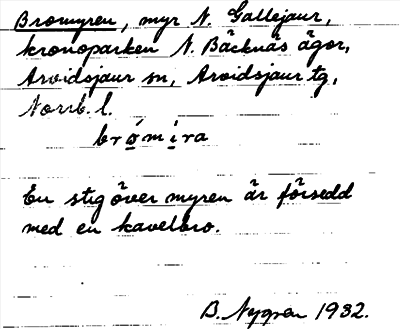 Bromyren, myr N. Gallejaur,
kronoparken N. Bäcknäs ägor,
Arvidsjaur sn, Arvidsjaur tg,
Norrb. l.
brómira
En stig över myren är försedd
med en kavelbro.
B. Nygren 1932.